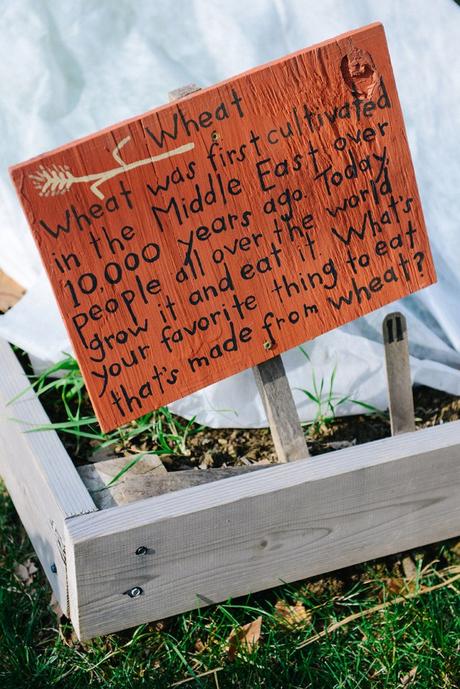 Wheat
Wheat was first cultivated
in the Middle East over
10,000 years ago. Today,
people all over the world
grow it and eat it. What's
your favorite thing to eat
that's made from wheat?